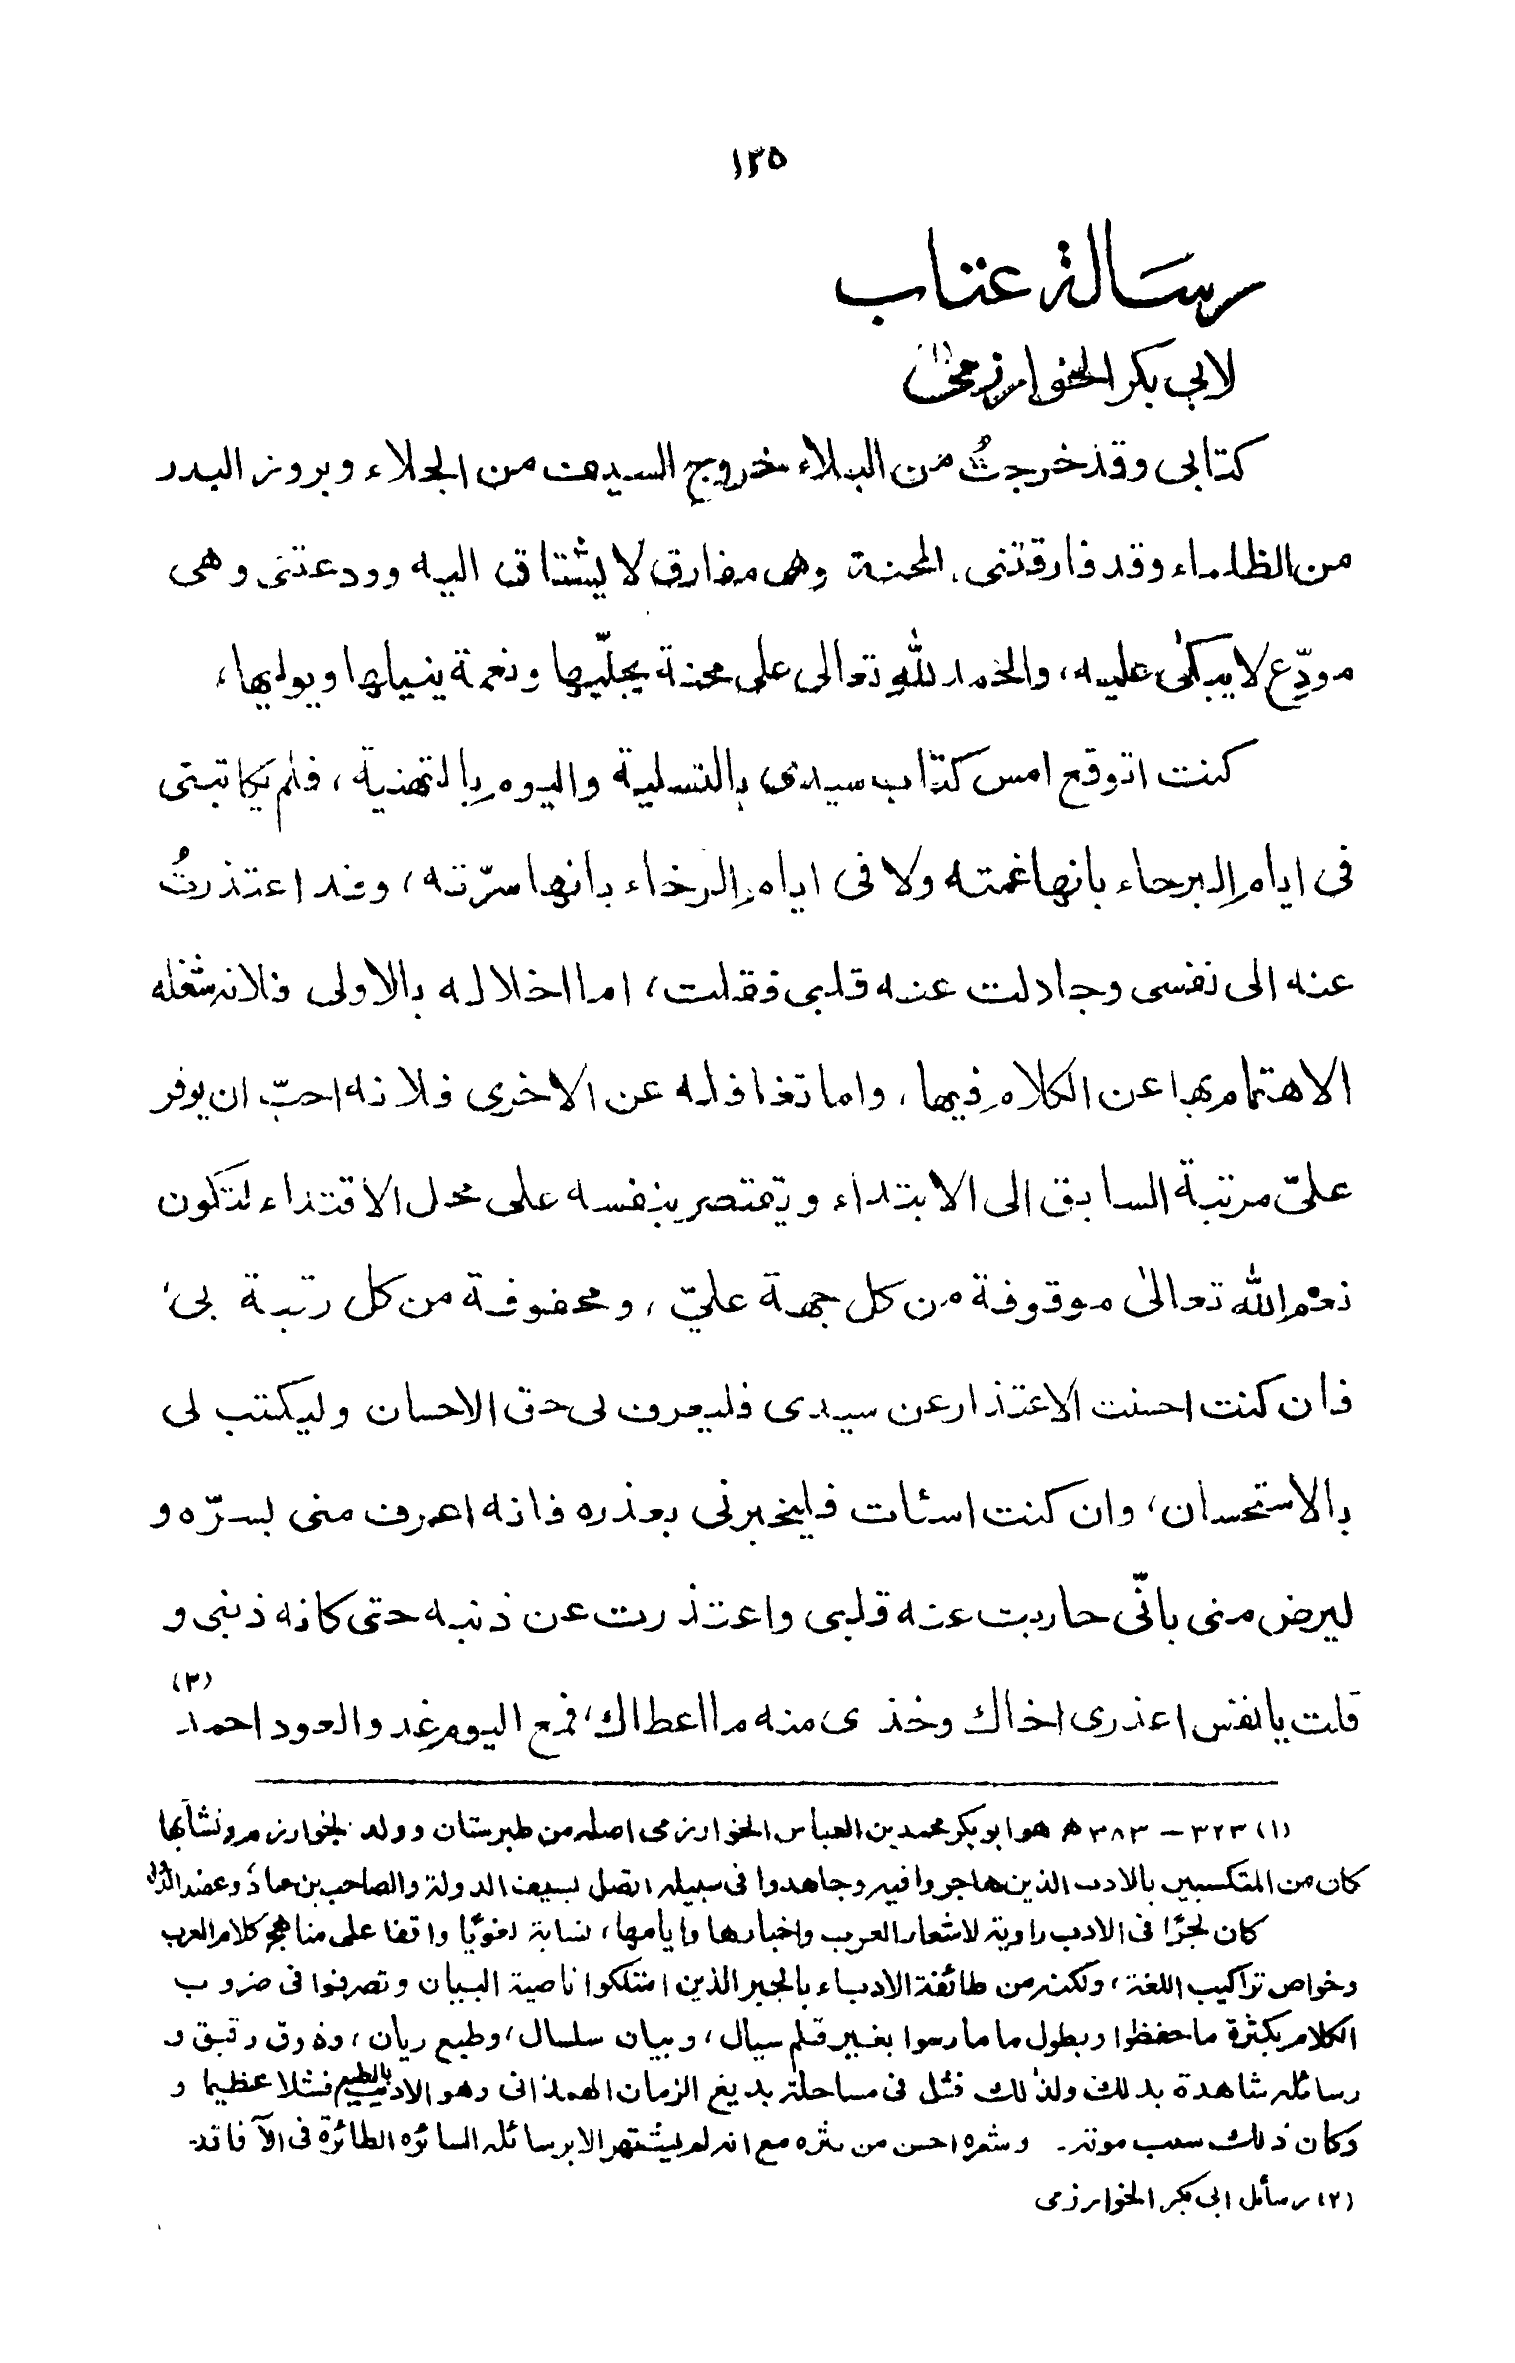 ١٣٥
رسالة عتاب
لابي بكر الخوارزمي (١)
كتابى وقد خرجتُ من البلاء خروج السيف من الجلاء وبروز البدر
من الظلماء وقد فارقتنى المحنة وهى مفارق لا يشتاق اليه وودعتنى وهى
مودِّع لا يبكى عليه، والحمد لله تعالى على محنة يجلّيها ونعمة ينيلها ويوليها،
كنت اتوقع امس كتاب سيدى بالتسلية واليوم بالتهنية، فلم يكاتبنى
فى ايام البرحاء بانها غمته ولا فى ايام الرخاء بانها سرّته، وقد اعتذرتُ
عنه الى نفسى وجادلت عنه قلبى فقلت، اما اخلاله بالاولى فلانه شغله
الاهتمام بها عن الكلام فيها، واما تغافله عن الاخرى فلانه احبّ ان يوفر
علىّ مرتبة السابق الى الابتداء ويقتصر بنفسه على محل الاقتداء لتكون
نعم الله تعالى موقوفة من كل جهة علىّ، ومحفوفة من كل رتبة بى،
فان كنت احسنت الاعتذار عن سيدى فليعرف لى حق الاحسان وليكتب لى
بالاستحسان، وان كنت اسئات فليخبرنى بعذره فانه اعرف منى بسرّه و
ليرض منى بانّى حاربت عنه قلبى واعتذرت عن ذنبه حتى كانه ذنبى و
قلت يا نفس اعذرى اخاك وخذى منه ما اعطاك، فمع اليوم غد والعود احمد (٢)
(١) ٣٢٣ – ٣٨٣ ھ هو ابو بكر محمد بن العباس الخوارزمى اصله من طبرستان وولد بخوارزم ونشأ بها
كان من المتكسبين بالادب الذين هاجروا فيه وجاهدوا فى سبيله اتصل بسيف الدولة والصاحب بن عباد وعضد الدولة
كان لجرًا فى الادب راوية لاشعار العرب واخبارها وايامها، نسابة لغويًا واقفا على مناهج كلام العرب
وخواص تراكيب اللغة، ولكنه من طائفة الادباء بالجبر الذين امتلكوا ناصية البيان وتصرفوا فى ضروب
الكلام بكثرة ما حفظوا وبطول ما مارسوا بغير قلم سيال، وبيان سلسال، وطبع ريان، وذوق رقيق و
رسائله شاهدة بذلك ولذلك فشل فى مساجلة بديع الزمان الهمذانى وهو الاديب بالطبع فشلا عظيما و
وكان ذلك سبب موته. وشعره احسن من نثره مع انه لم يشتهر الا برسائله السائره الطائرة فى الآفاق
(٢) رسائل ابى بكر الخوارزمى